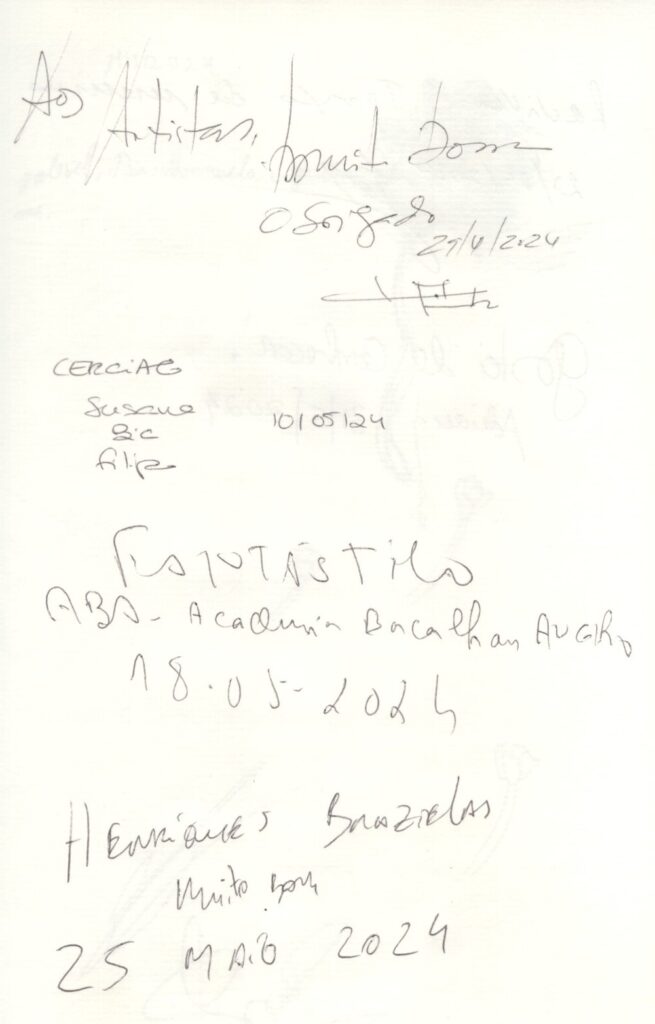 Aos Artistas,
Obrigado
29/4/2024
CERCIAG
Susana 10/05/24
Filipe
FANTÁSTICO
ABA - Academia Bacalhau Aveiro
18.05-2024
Henriques
Muito bom
25 MAIO 2024